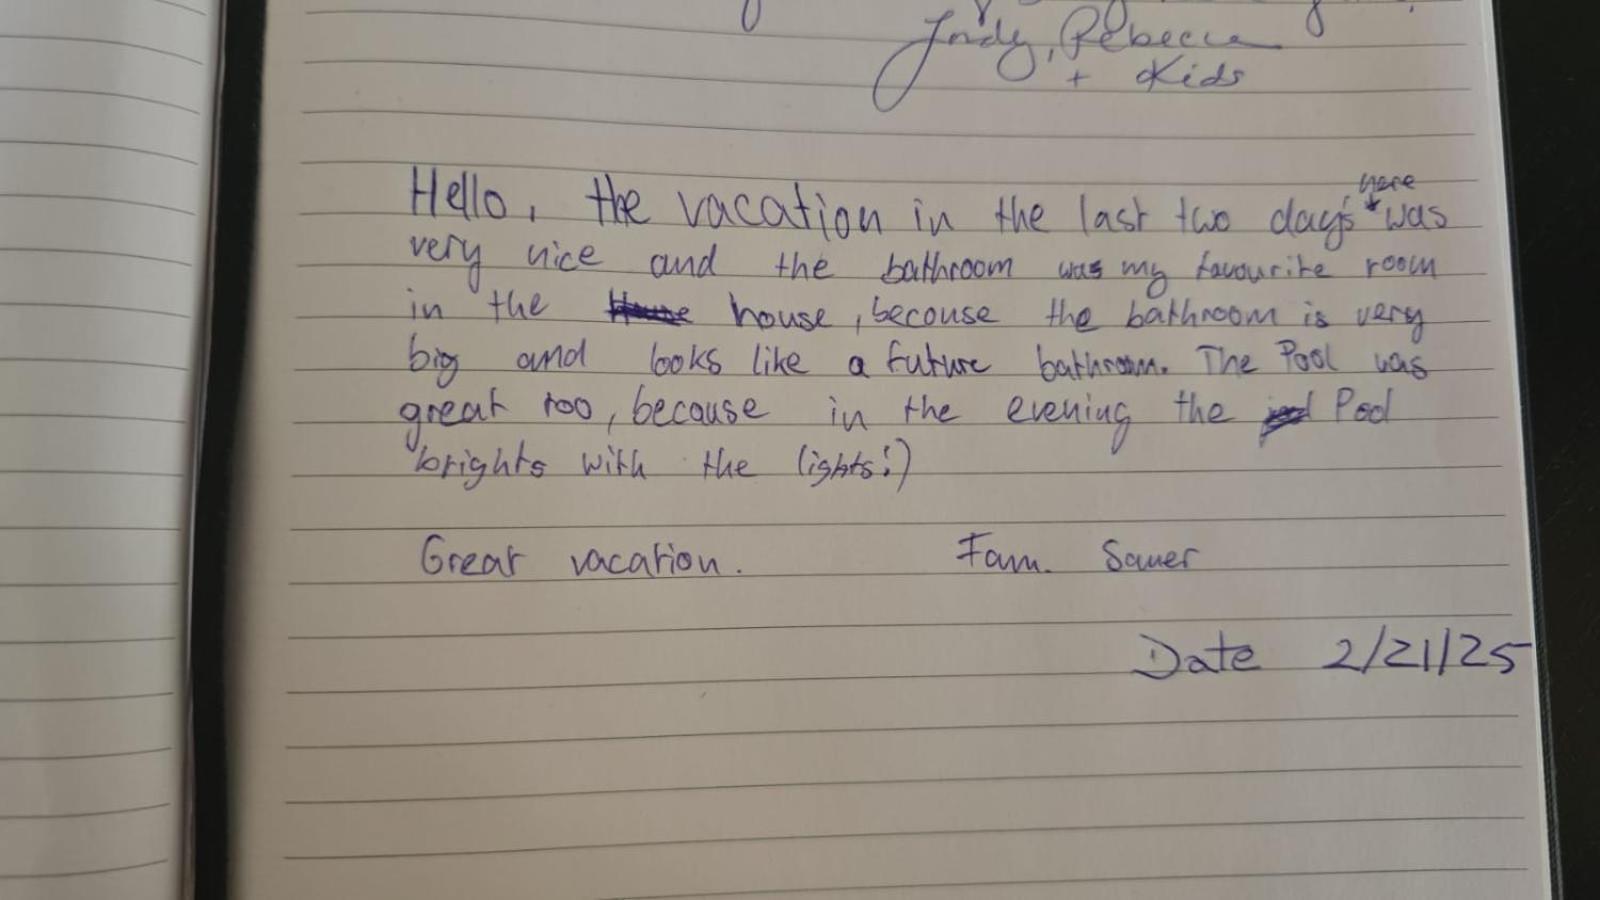 Jordy, Rebecca
+ Kids
here
Hello, the vacation in the last two days was
very nice and the bathroom was my favourite room
in the house, becouse the bathroom is very
big and looks like a future bathroom. The Pool was
great too, because in the evening the Pool
brights with the lights:)
Great vacation. Fam. Sauer
Date 2/21/25